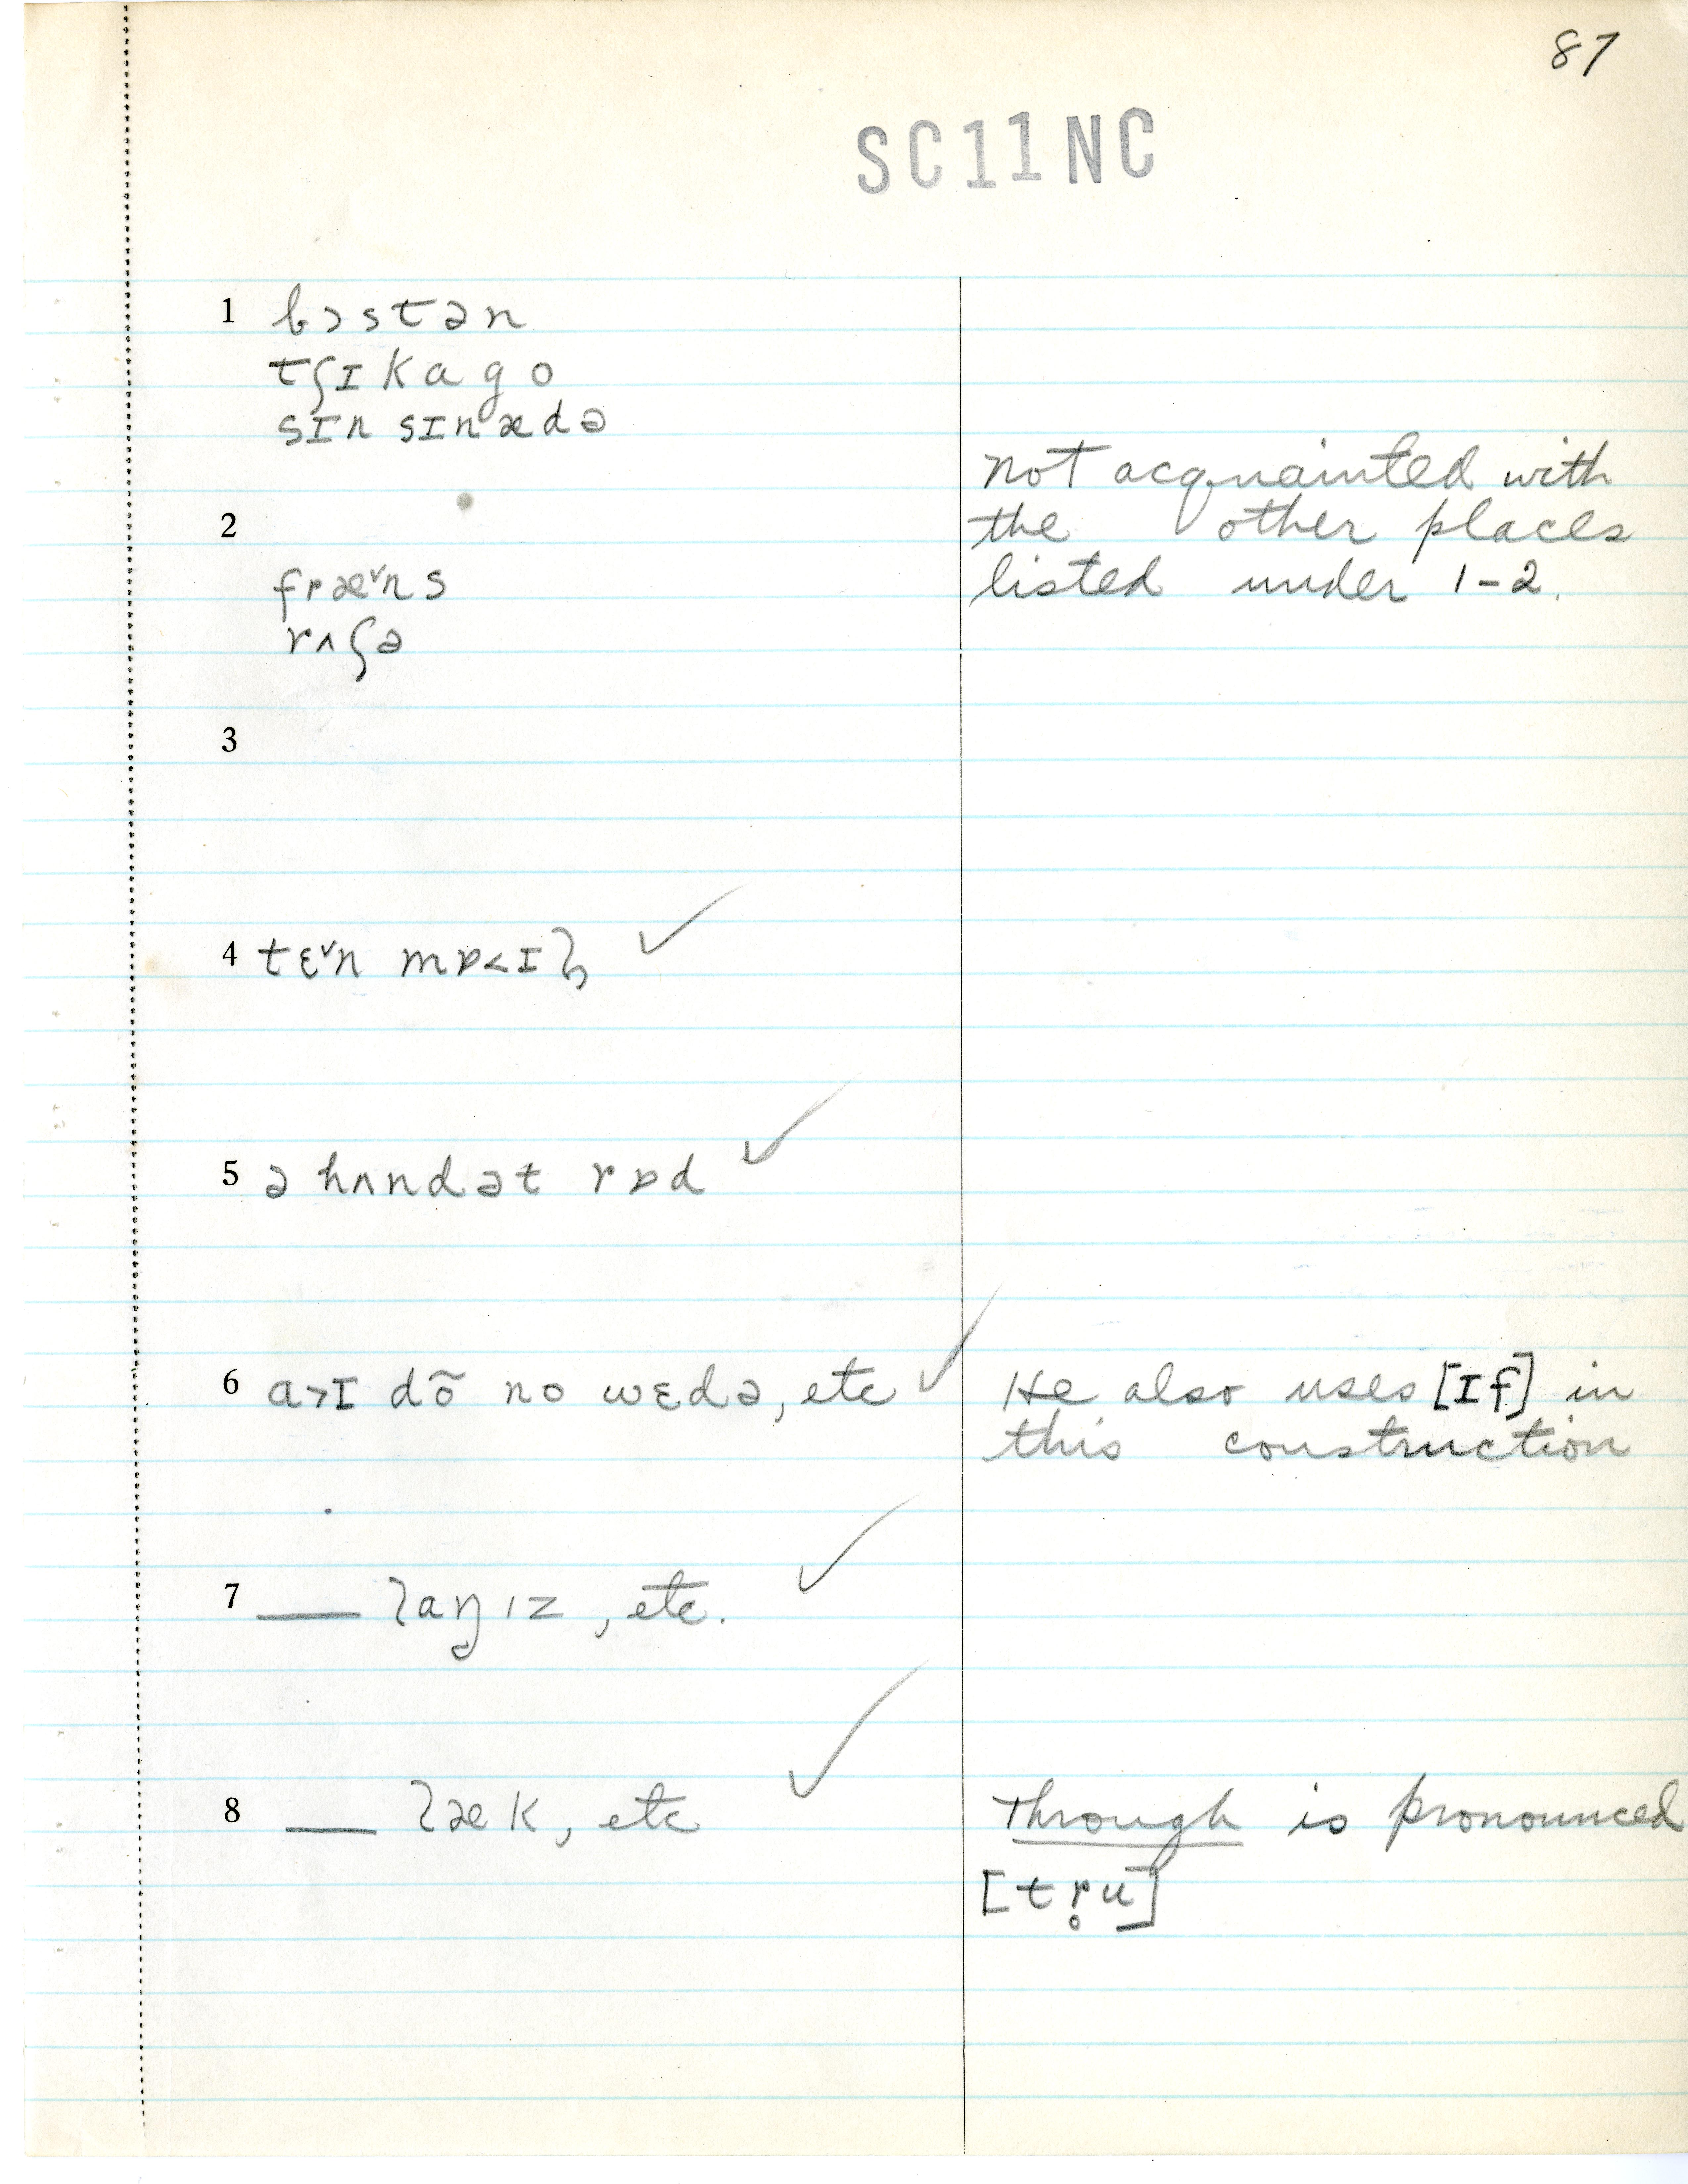 87
SC11NC
1 bɔstən
tʃɪkago
sɪnsɪnædə
not acquainted with
2 the other places
listed under 1-2.
fræ˅ns
rʌʃə
3
4 tɛ˅n mɒ˂ɪɫ ✓
5 ə hʌndət rɒd ✓
6 a˃ɪ dõ no wɛdə, etc ✓ He also uses [ɪf] in
this construction
7 ___ laŋɪz, etc. ✓
8 ___ læk, etc ✓ Through is pronounced
[tr̥u]